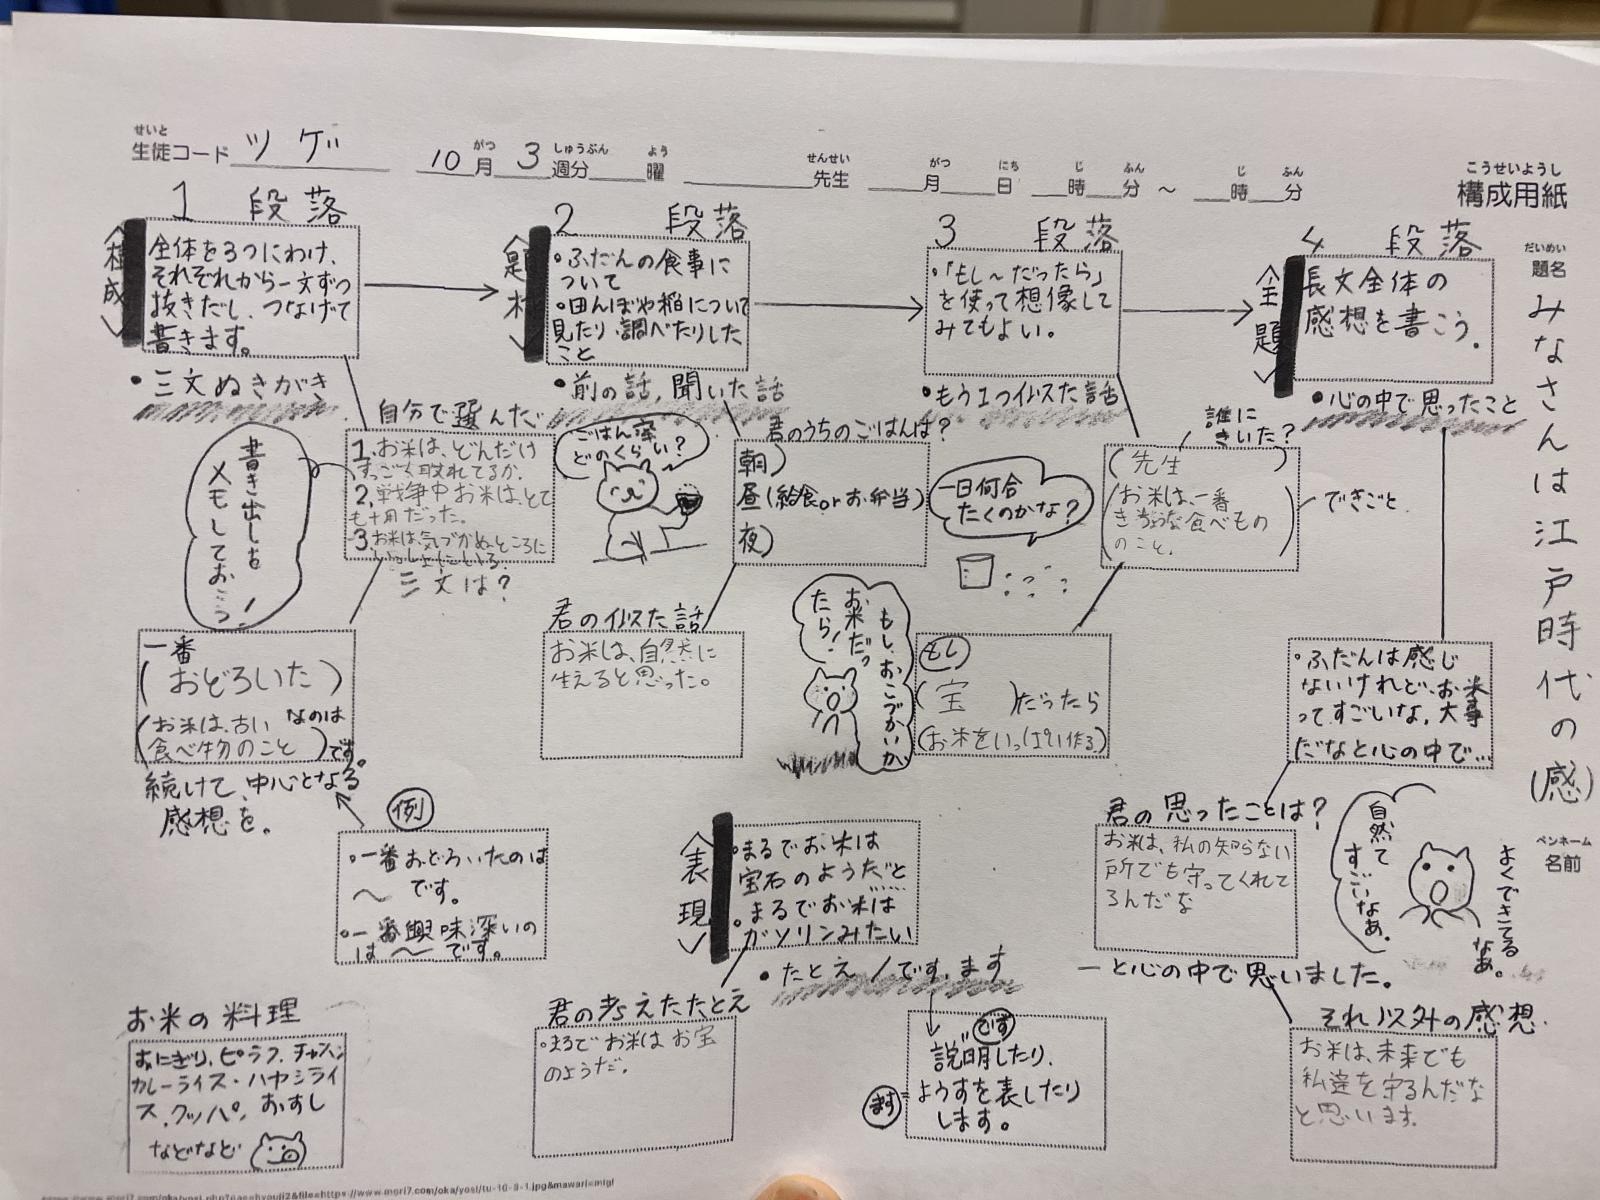 せいと
生徒コード ツゲ 10月 3週分 曜 先生 月 日 時 分 ～ 時 分
がつ しゅうぶん よう せんせい がつ にち じ ふん じ ふん
こうせいようし
構成用紙
だいめい
題名
みなさんは江戸時代の(感)
ペンネーム
名前
1 段落
〈構成〉
全体を3つにわけ、
それぞれから一文ずつ
抜きだし、つなげて
書きます。
・三文ぬきがき
自分で選んだ
書き出しも
メモしておこう!
1.お米は、どんだけ
すっごく取れてるか。
2.戦争中お米は、とて
だった。
3お米は、気づかぬところに
いっしょにいる。
三文は?
一番
(おどろいた)
なのは
(お米は、古い
食べ物のこと)です。
続けて、中心となる
感想を。
例
・一番おどろいたのは
～です。
・一番興味深いの
は～です。
お米の料理
おにぎり、ピラフ、チャーハン
カレーライス・ハヤシライ
ス、クッパ、おすし
などなど
2 段落
〈題材〉
・ふだんの食事に
ついて
・田んぼや稲について
見たり、調べたりした
こと
・前の話,聞いた話
ごはん
どのくらい?
君のうちのごはんは?
朝)
昼(給食orお弁当)
夜)
君の似た話
お米は、自然に
生えると思った。
もし、おこづかいが
お米だっ
たら!
〈表現〉
・まるでお米は
宝石のようだと
・まるでお米は
ガソリンみたい
・たとえ/です、ます
君の考えたたとえ
・まるでお米はお宝
のようだ。
です
ます
説明したり、
ようすを表したり
します。
3 段落
・「もし～だったら」
を使って想像して
みてもよい。
・もう1つ似た話
一日何合
たくのかな?
誰に
きいた?
(先生)
(お米は、一番
食べもの
のこと。)
できごと
もし
(宝)だったら
(お米をいっぱい作る)
4 段落
〈主題〉
長文全体の
感想を書こう。
・心の中で思ったこと
・ふだんは感じ
ないけれど、お米
ってすごいな,大事
だなと心の中で…
君の思ったことは?
お米は、私の知らない
所でも守ってくれて
るんだな
自然て
すごいなあ。
よくできてる
なあ。
―と心の中で思いました。
それ以外の感想
お米は、未来でも
私達を守るんだな
と思います。